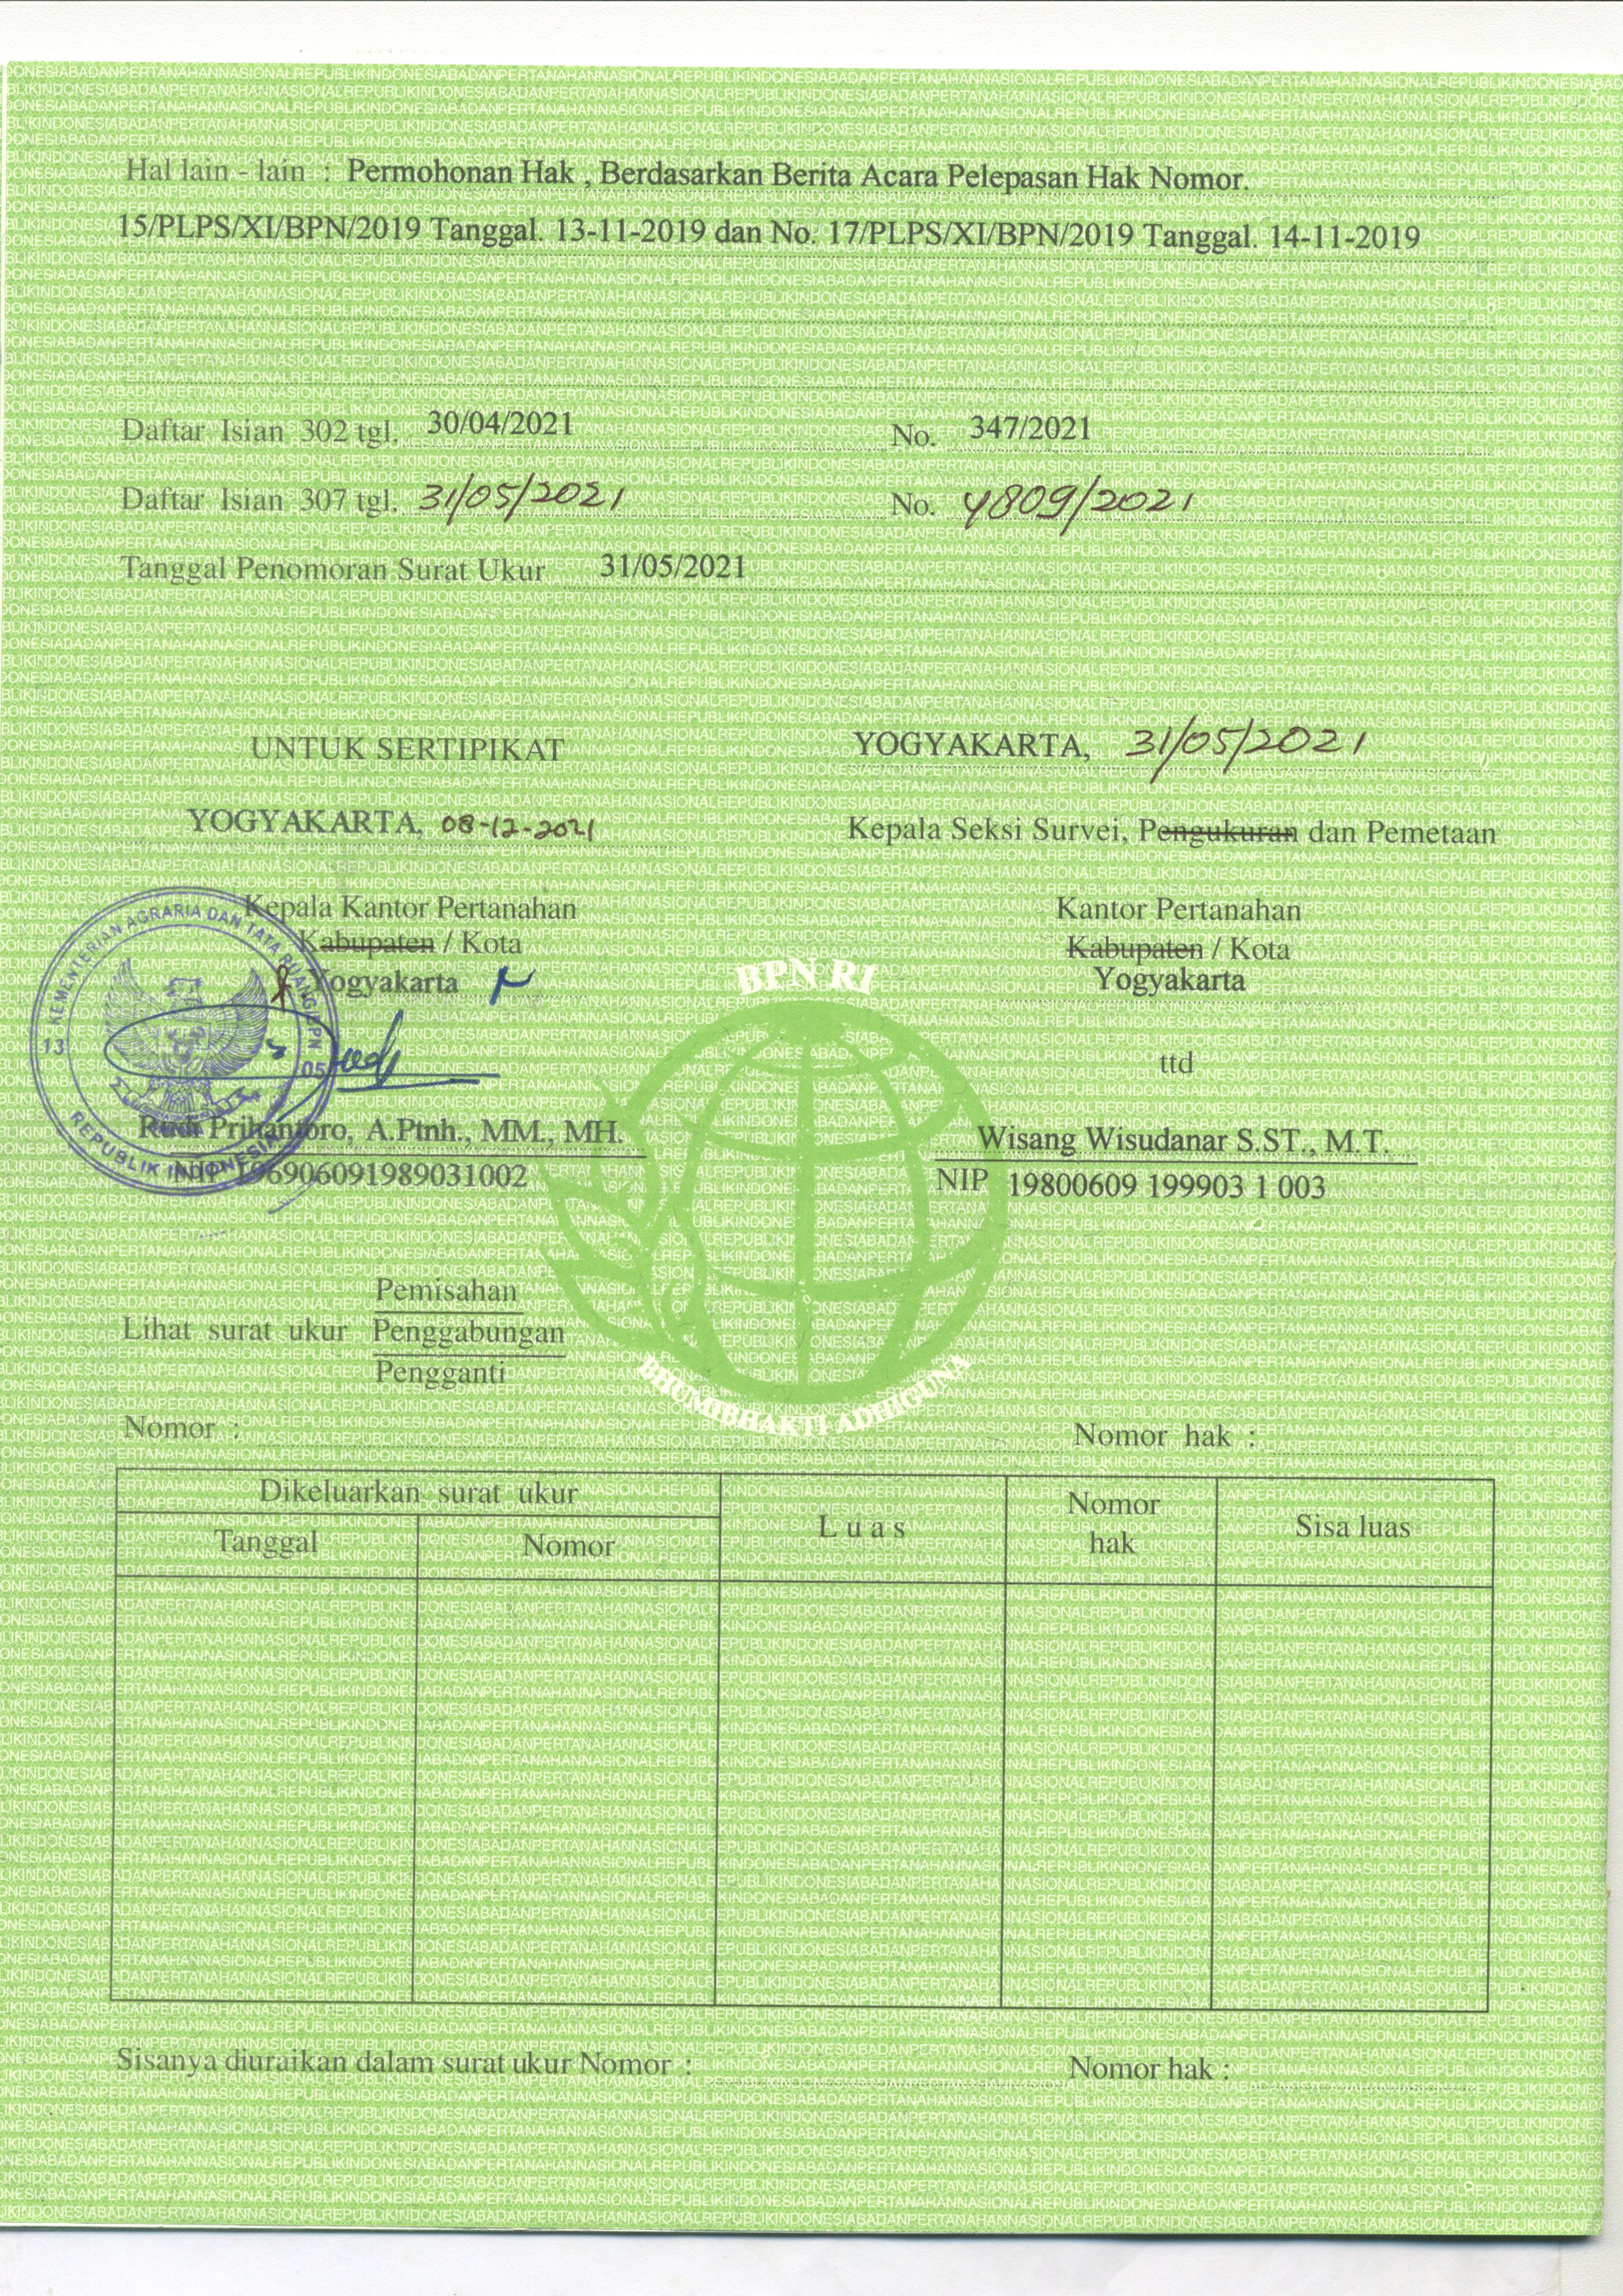 Hal lain - lain : Permohonan Hak , Berdasarkan Berita Acara Pelepasan Hak Nomor.
15/PLPS/XI/BPN/2019 Tanggal. 13-11-2019 dan No. 17/PLPS/XI/BPN/2019 Tanggal. 14-11-2019
Daftar Isian 302 tgl. 30/04/2021 No. 347/2021
Daftar Isian 307 tgl. 31/05/2021 No. 4809/2021
Tanggal Penomoran Surat Ukur 31/05/2021
UNTUK SERTIPIKAT
YOGYAKARTA, 08-12-2021
Kepala Kantor Pertanahan
Kabupaten / Kota
Yogyakarta
KEMENTERIAN AGRARIA DAN TATA RUANG/BPN
13 05
REPUBLIK INDONESIA
Rudi Prihantoro, A.Ptnh., MM., MH.
NIP 196906091989031002
YOGYAKARTA, 31/05/2021
Kepala Seksi Survei, Pengukuran dan Pemetaan
Kantor Pertanahan
Kabupaten / Kota
Yogyakarta
ttd
Wisang Wisudanar S.ST., M.T.
NIP 19800609 199903 1 003
BPN RI
BHUMIBHAKTI ADHIGUNA
Pemisahan
Lihat surat ukur Penggabungan
Pengganti
Nomor : Nomor hak :
Dikeluarkan surat ukur
Tanggal Nomor Luas Nomor hak Sisa luas
Sisanya diuraikan dalam surat ukur Nomor : Nomor hak :